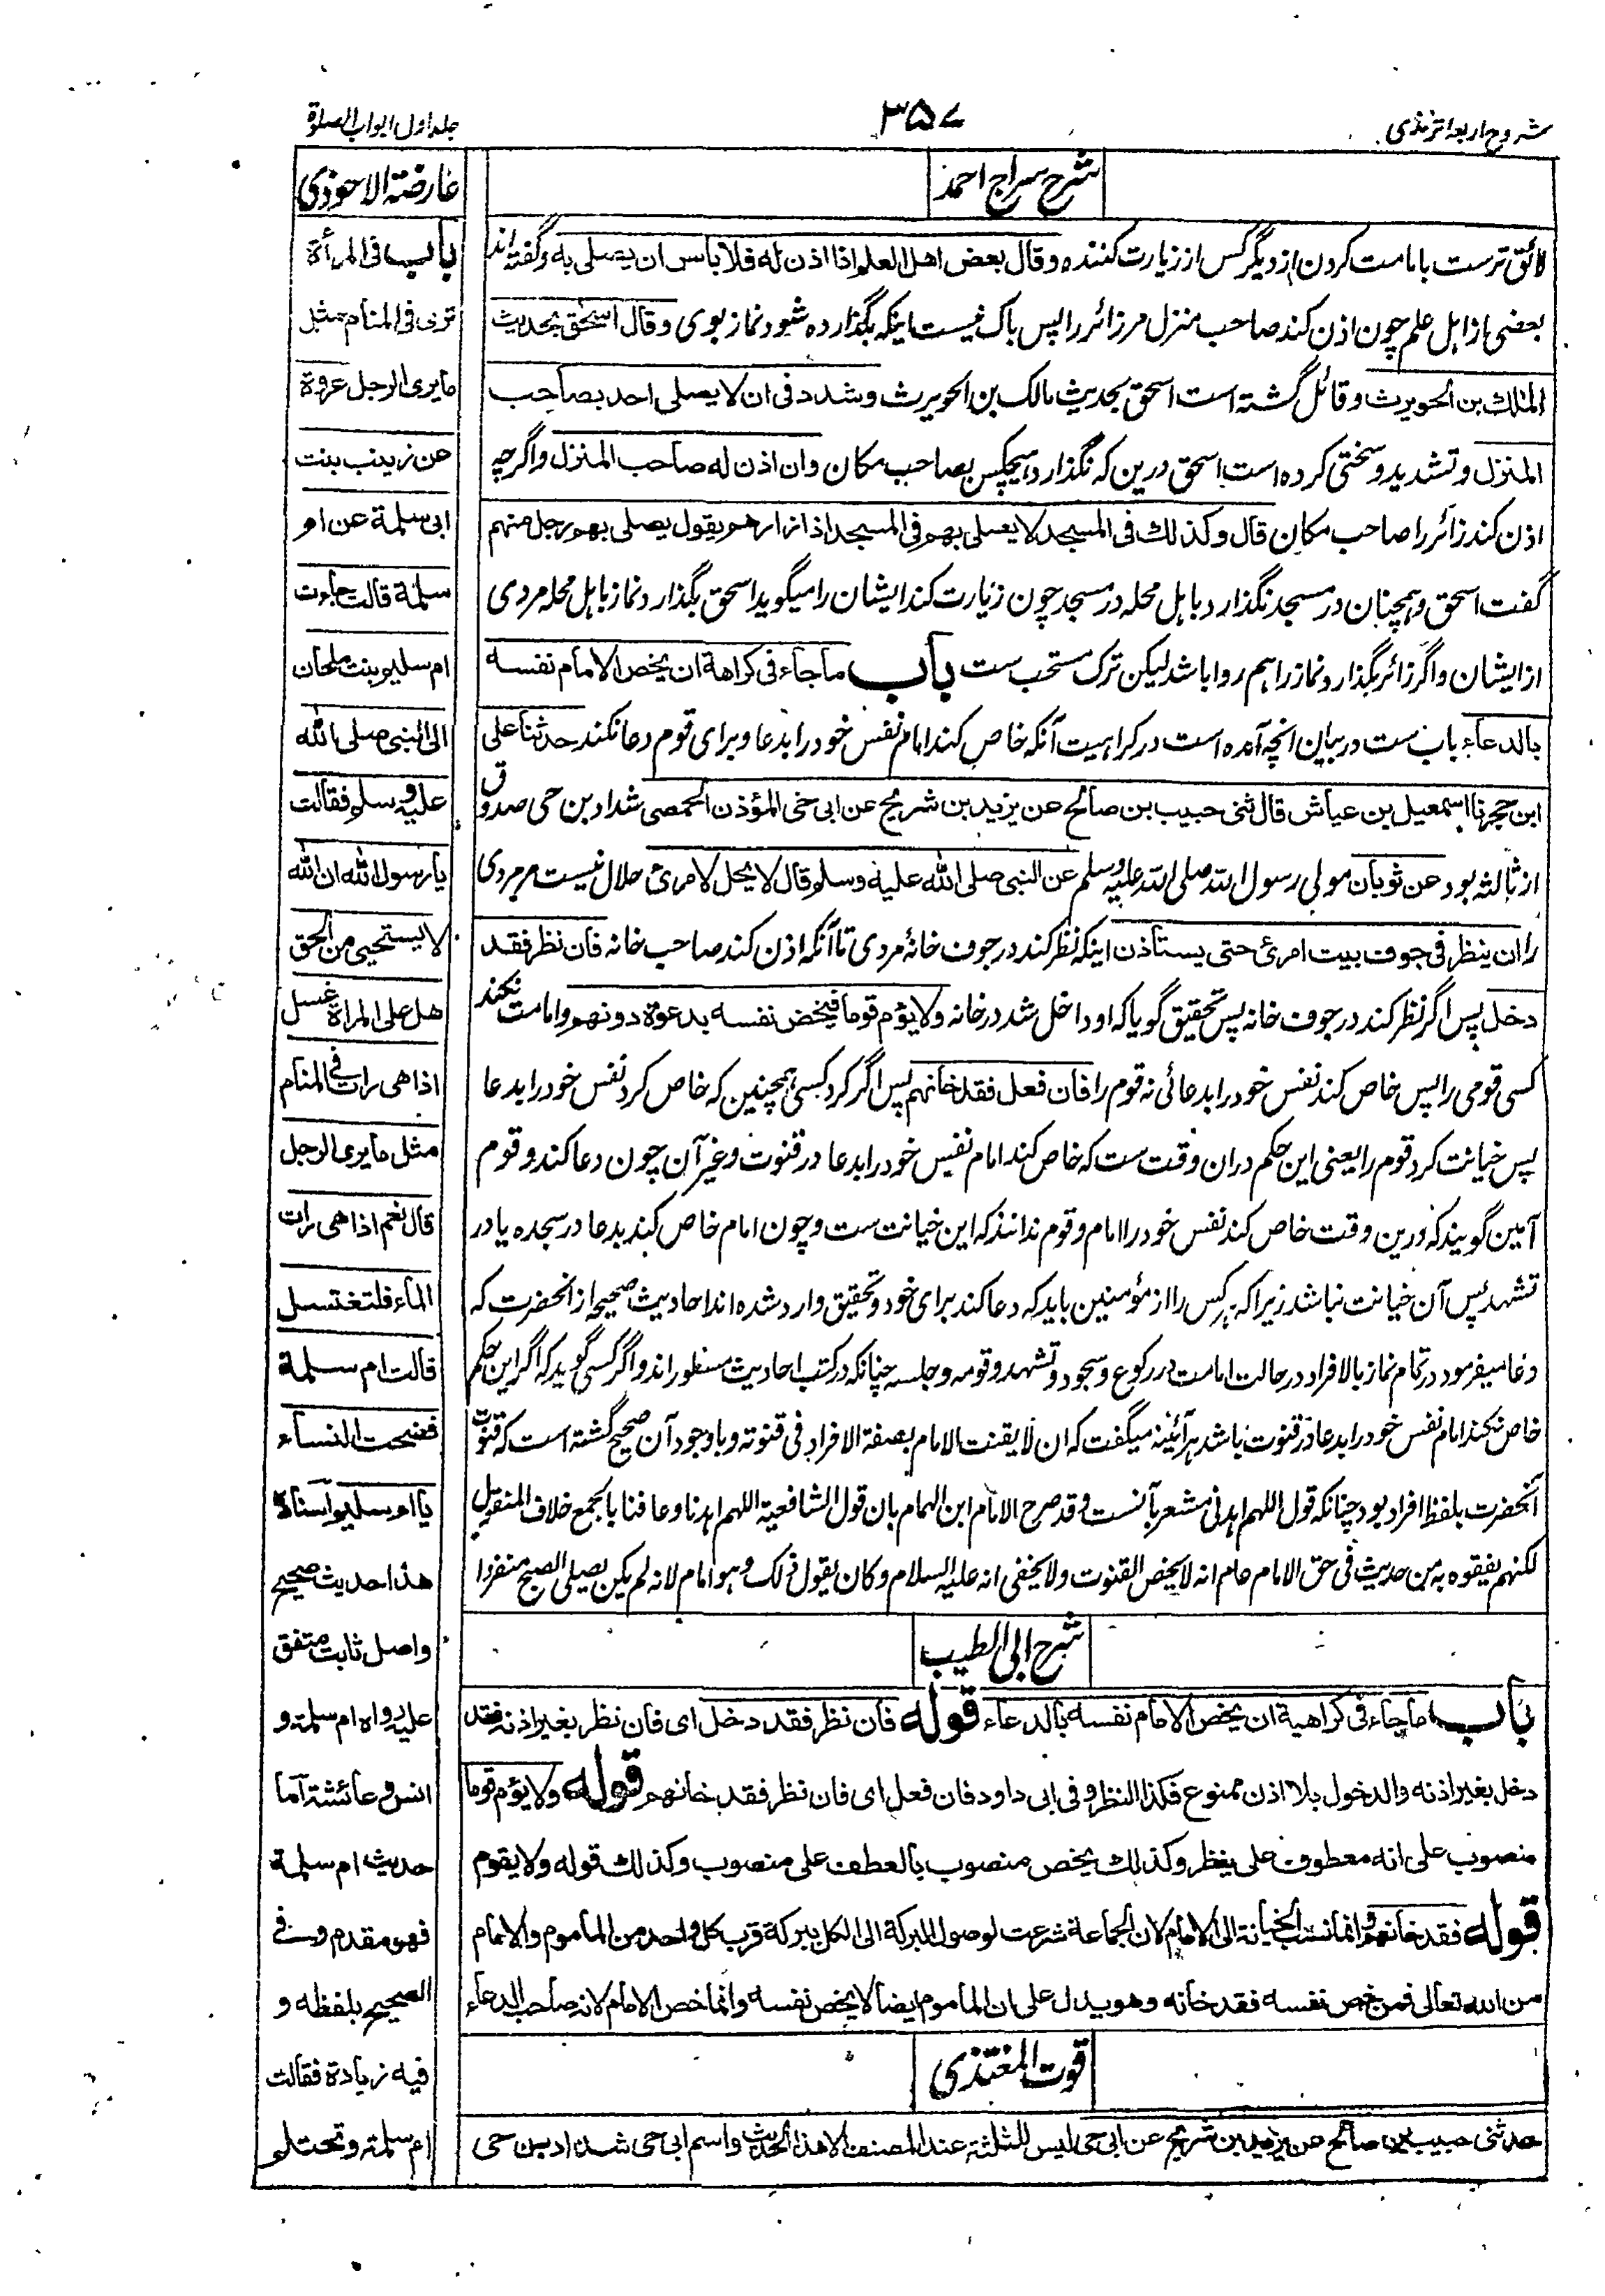 شروح اربعه ترمذی
۳۵۷
جلد اول ابواب الصلوة
شرح سراج احمد
لائق ترست بامامت کردن از دیگر کس از زیارت کننده وقال بعض اهل العلم اذا اذن له فلا باس ان یصلی به وگفته اند
بعضی از اہل علم چون اذن کند صاحب منزل مر زائر را پس باک نیست اینکه بگذارده شود نماز بوی وقال اسحٰق بحدیث
المالك بن الحویرث وقائل گشته است اسحق بحدیث مالک بن الحویرث وشدد فی ان لا یصلی احد بصاحب
المنزل وتشدید وسختی کرده است اسحق درین که نگذارد هیچکس بصاحب مکان وان اذن له صاحب المنزل واگرچه
اذن کند زائر را صاحب مکان قال وکذلك فی المسجد لا یصلی بهم فی المسجد اذا زارهم یقول یصلی بهم رجل منهم
گفت اسحق وہمچنان در مسجد نگذارد باہل محله در مسجد چون زیارت کند ایشان را میگوید اسحق بگذارد نماز باہل محله مردی
از ایشان واگر زائر بگذارد نماز را ہم روا باشد لیکن ترک مستحب ست باب ما جاء فی کراهة ان یخص الامام نفسه
بالدعاء باب ست در بیان انچه آمده است در کراہیت آنکه خاص کند امام نفس خود را بدعا وبرای قوم دعا نکند حدثنا علی
ابن حجر نا اسمعیل بن عیاش قال ثنی حبیب بن صالح عن یزید بن شریح عن ابی حی المؤذن الحمصی شداد بن حی صدوق
از ثالثه بود عن ثوبان مولی رسول الله صلی الله علیه وسلم عن النبی صلی الله علیه وسلم قال لا یحل لامرئ حلال نیست مر مردی
را ان ینظر فی جوف بیت امرئ حتی یستأذن اینکه نظر کند در جوف خانۀ مردی تا آنکه اذن کند صاحب خانه فان نظر فقد
دخل پس اگر نظر کند در جوف خانه پس تحقیق گویا که او داخل شد در خانه ولا یؤم قوما فیخص نفسه بدعوة دونهم وامامت نکند
کسی قومی را پس خاص کند نفس خود را بدعائی نه قوم را فان فعل فقد خانهم پس اگر کرد کسی ہمچنین که خاص کرد نفس خود را بدعا
پس خیانت کرد قوم را یعنی این حکم دران وقت ست که خاص کند امام نفس خود را بدعا در قنوت وغیر آن چون دعا کند وقوم
آمین گویند که درین وقت خاص کند نفس خود را امام وقوم ندانند که این خیانت ست وچون امام خاص کند بدعا در سجده یا در
تشہد پس آن خیانت نباشد زیرا که ہر کس را از مؤمنین باید که دعا کند برای خود وتحقیق وارد شده اند احادیث صحیحه از انحضرت که
دعا میفرمود در تمام نماز بالافراد در حالت امامت در رکوع وسجود وتشہد وقومه وجلسه چنانکه در کتب احادیث مسطور اند واگر کسی گوید که اگر این حکم
خاص نکند امام نفس خود را بدعا در قنوت باشد ہر آئینه میگفت که ان لا یقنت الامام بصفة الافراد فی قنوته وباوجود آن صحیح گشته است که قنوت
آنحضرت بلفظ افراد بود چنانکه قول اللهم اهدنی مشعر بآنست وقد صرح الامام ابن الہمام بان قول الشافعیة اللهم اهدنا وعافنا بالجمع خلاف المنقول
لکنهم یفیقوه من حدیث فی حق الامام عام انه لا یخص القنوت ولا یخفی انه علیه السلام وکان یقول ذلک وهو امام لانه لم یکن یصلی الصبح منفردا
شرح ابی الطیب
باب ما جاء فی کراهیة ان یخص الامام نفسه بالدعاء قوله فان نظر فقد دخل ای فان نظر بغیر اذنه فقد
دخل بغیر اذنه والدخول بلا اذن ممنوع فکذا النظر وفی ابی داود فان فعل ای فان نظر فقد خانهم قوله ولا یؤم قوما
منصوب علی انه معطوف علی ینظر وکذلك یخص منصوب بالعطف علی منصوب وکذلك قوله ولا یقوم
قوله فقد خانهم وانما نسب الخیانة الی الامام لان الجماعة شرعت لوصول البرکة الی الکل ببرکة قرب کل واحد من الماموم والامام
من الله تعالی فمن خص نفسه فقد خانه وهو یدل علی ان الماموم ایضا لا یخص نفسه وانما خص الامام لانه صاحب الدعاء
قوت المغتذی
حدثنی حبیب بن صالح عن یزید بن شریح عن ابی حی لیس للثلثة عند المصنف الا هذا الحدیث واسم ابی حی شداد بن حی
عارضة الاحوذی
باب فی المرأة
تری فی المنام مثل
ما یری الرجل عروة
عن زینب بنت
ابی سلمة عن ام
سلمة قالت جاءت
ام سلیم بنت ملحان
الی النبی صلی الله
علیه وسلم فقالت
یا رسول الله ان الله
لا یستحیی من الحق
هل علی المرأة غسل
اذا هی رات فی المنام
مثل ما یری الرجل
قال نعم اذا هی رات
الماء فلتغتسل
قالت ام سلمة
فضحت النساء
یا ام سلیم اسناده
هذا حدیث صحیح
واصل ثابت متفق
علیه رواه ام سلمة و
انس وعائشة اما
حدیث ام سلمة
فهو مقدم وفی
الصحیح بلفظه و
فیه زیادة فقالت
ام سلمة وتحتلم